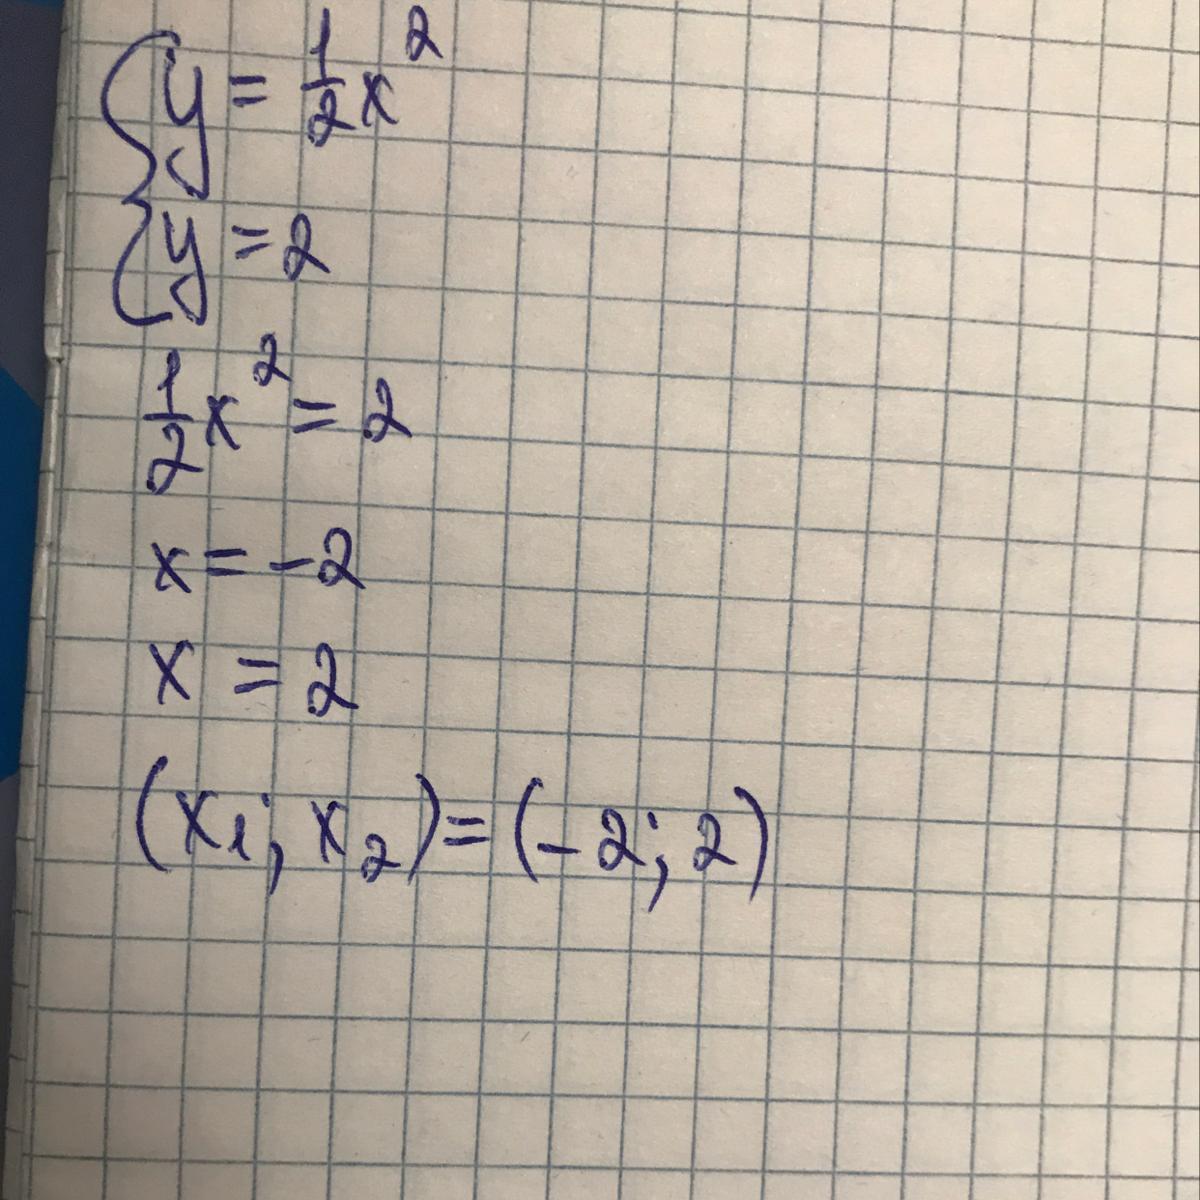 {y = 1/2 x²
{y = 2
1/2 x² = 2
x = -2
x = 2
(x₁; x₂) = (-2; 2)